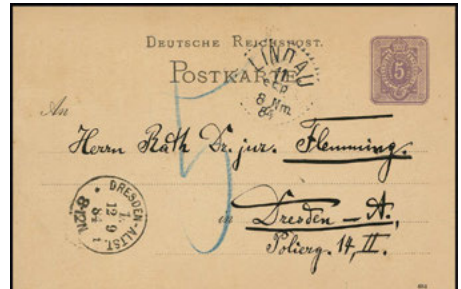 DEUTSCHE REICHSPOST.
POSTKARTE
LINDAU
11
SEP
8 Nm.
84
5
An
5
Herrn Rath Dr. jur. Flemming.
in Dresden – A.,
Polierg. 14, II.
DRESDEN-ALTST. 1
I.
12 9
84
8-12N.